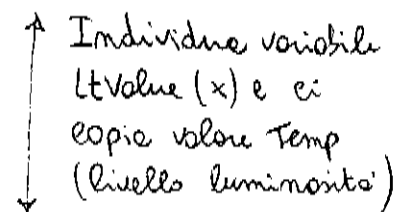 Individua variabile
LtValue (x) e ci
copia valore Temp
(livello luminosità)